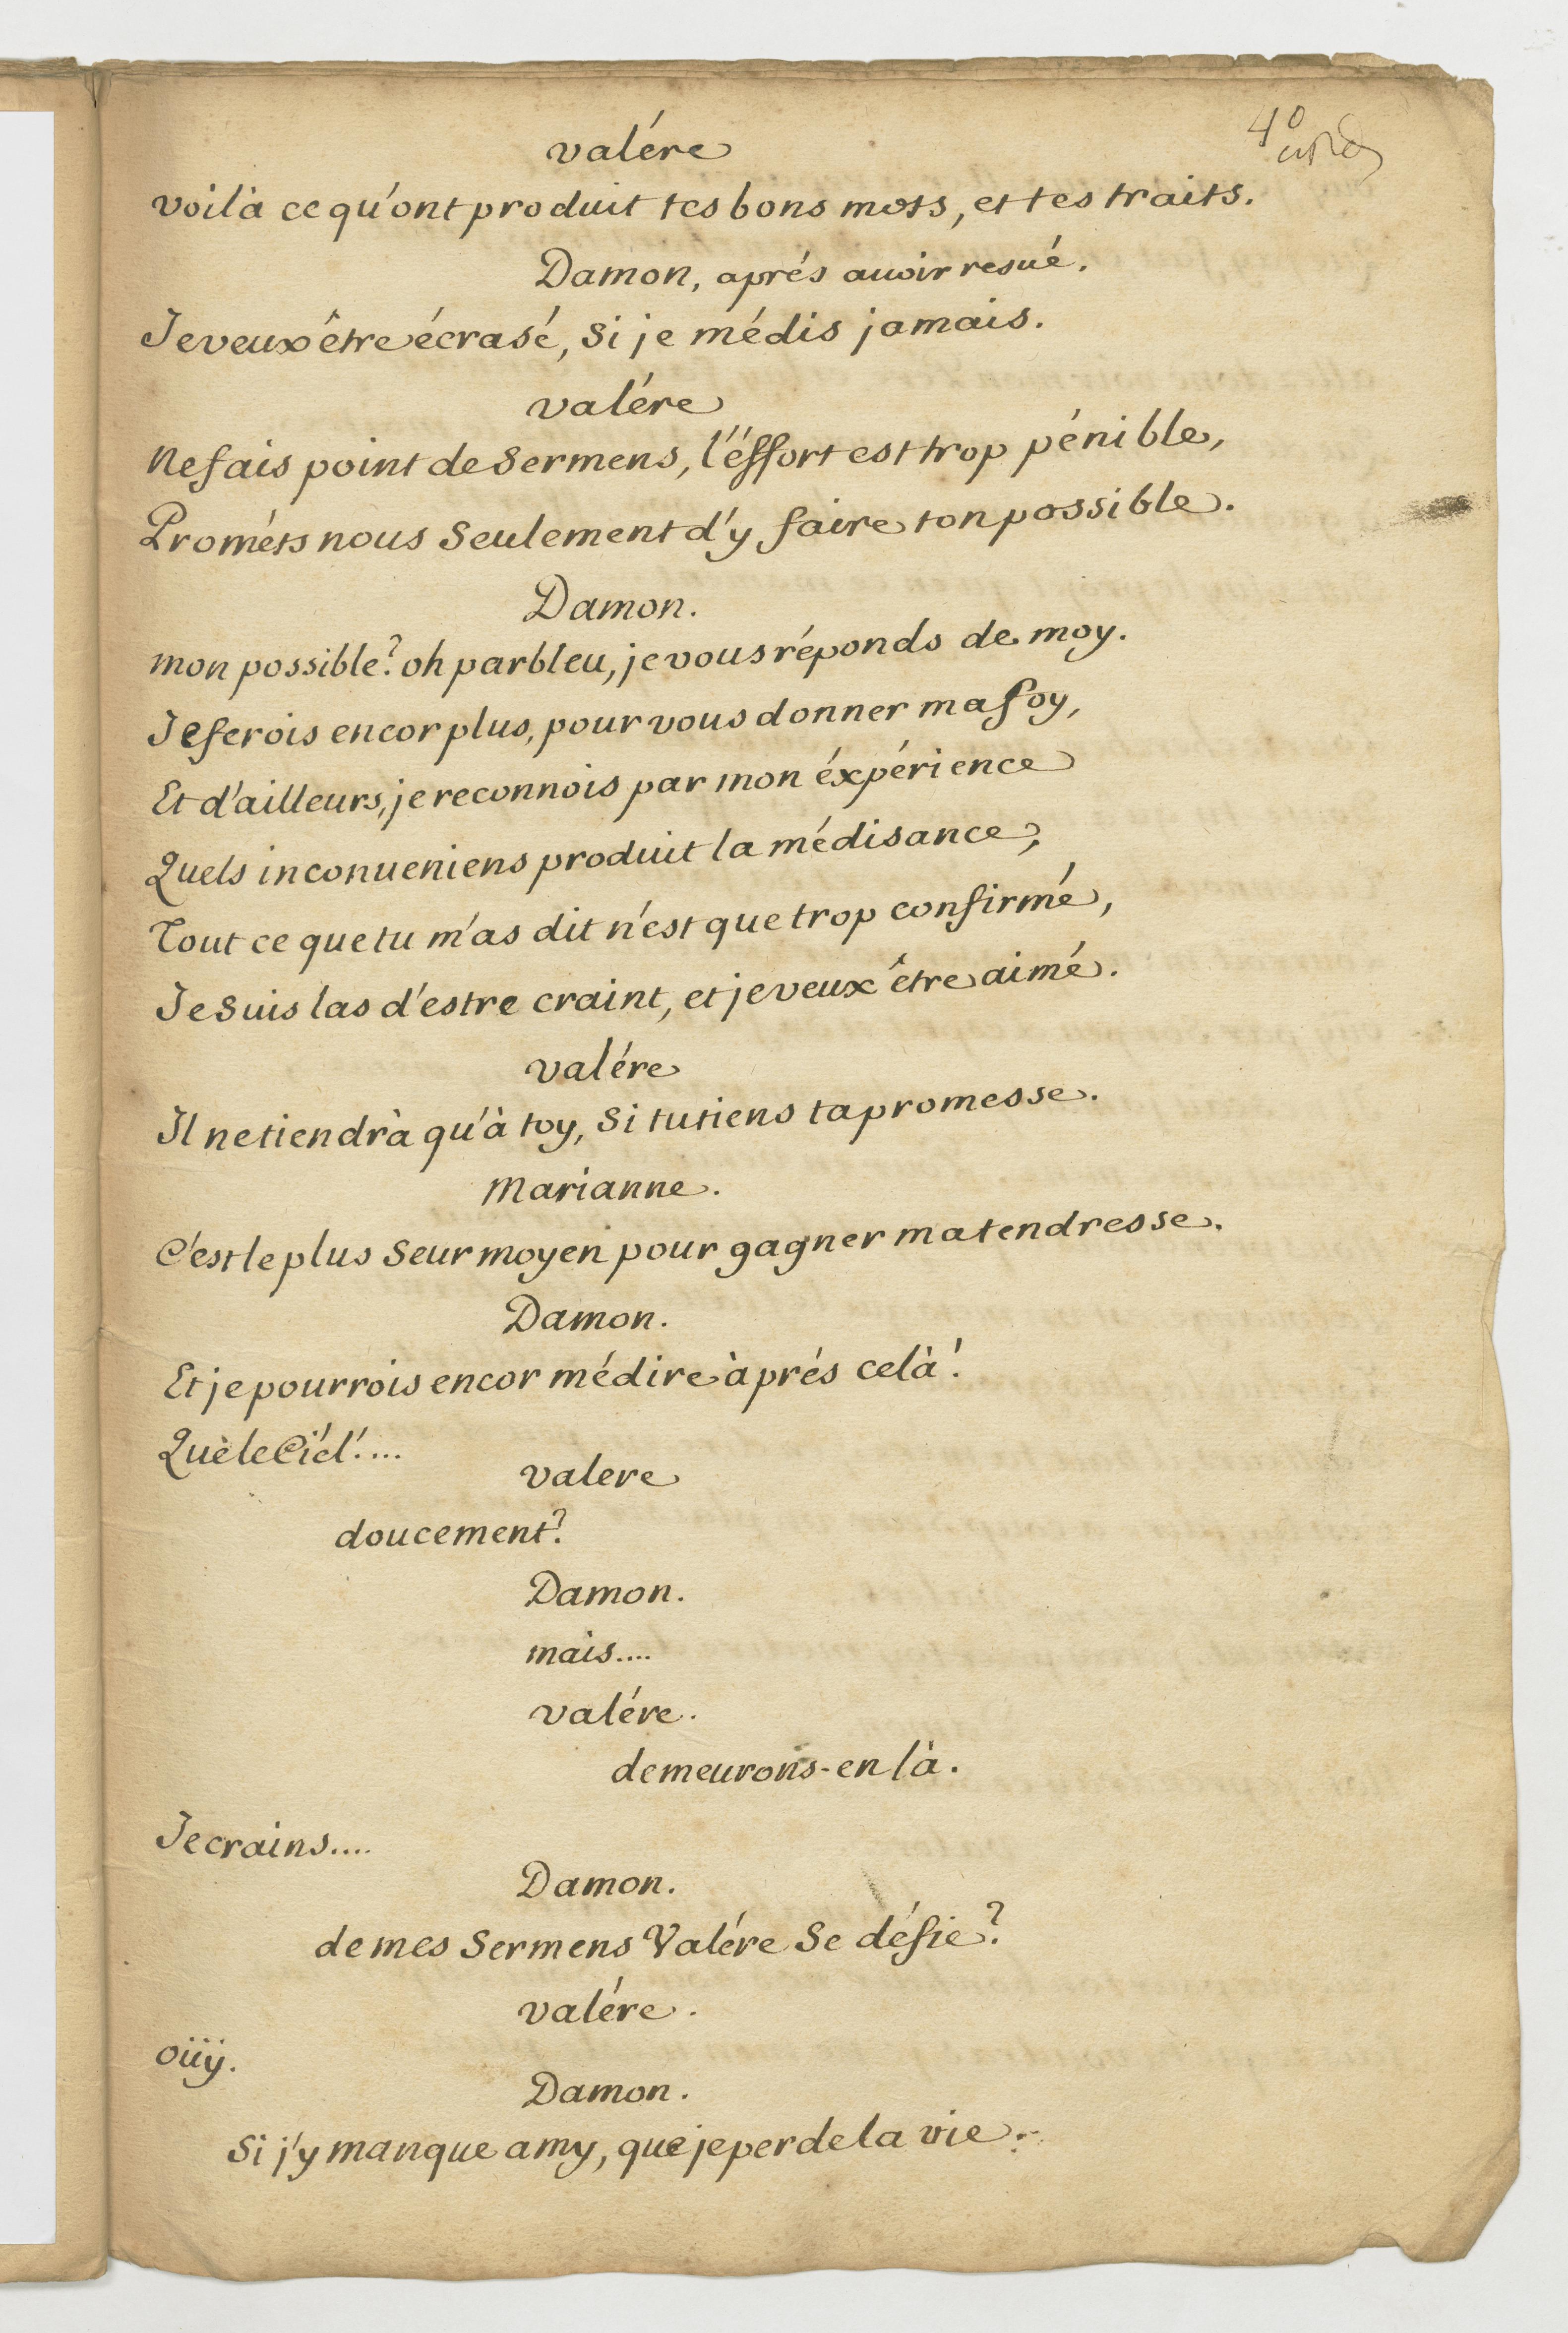 40
valére
voilà ce qu'ont produit tes bons mots, et tes traits.
Damon, aprés auoir resué.
Je veux être écrasé, Si je médis jamais.
valére
Ne fais point de Sermens, l'éffort est trop pénible,
Prométs nous Seulement d'y faire ton possible.
Damon.
mon possible? oh parbleu, je vous réponds de moy.
Je ferois encor plus, pour vous donner ma foy,
Et d'ailleurs, je reconnois par mon éxpérience
Quels inconueniens produit la médisance,
Tout ce que tu m'as dit n'est que trop confirmé,
Je Suis las d'estre craint, et je veux être aimé.
valére
Il ne tiendrà qu'à toy, Si tu tiens ta promesse.
Marianne.
C'est le plus Seur moyen pour gagner ma tendresse.
Damon.
Et je pourrois encor médire àprés celà!
Què le Ciél!....
valere
doucement?
Damon.
mais....
valére.
demeurons-en là.
Je crains....
Damon.
de mes Sermens Valére Se défie?
valére.
oüÿ.
Damon.
Si j'y manque amy, que je perde la vie.